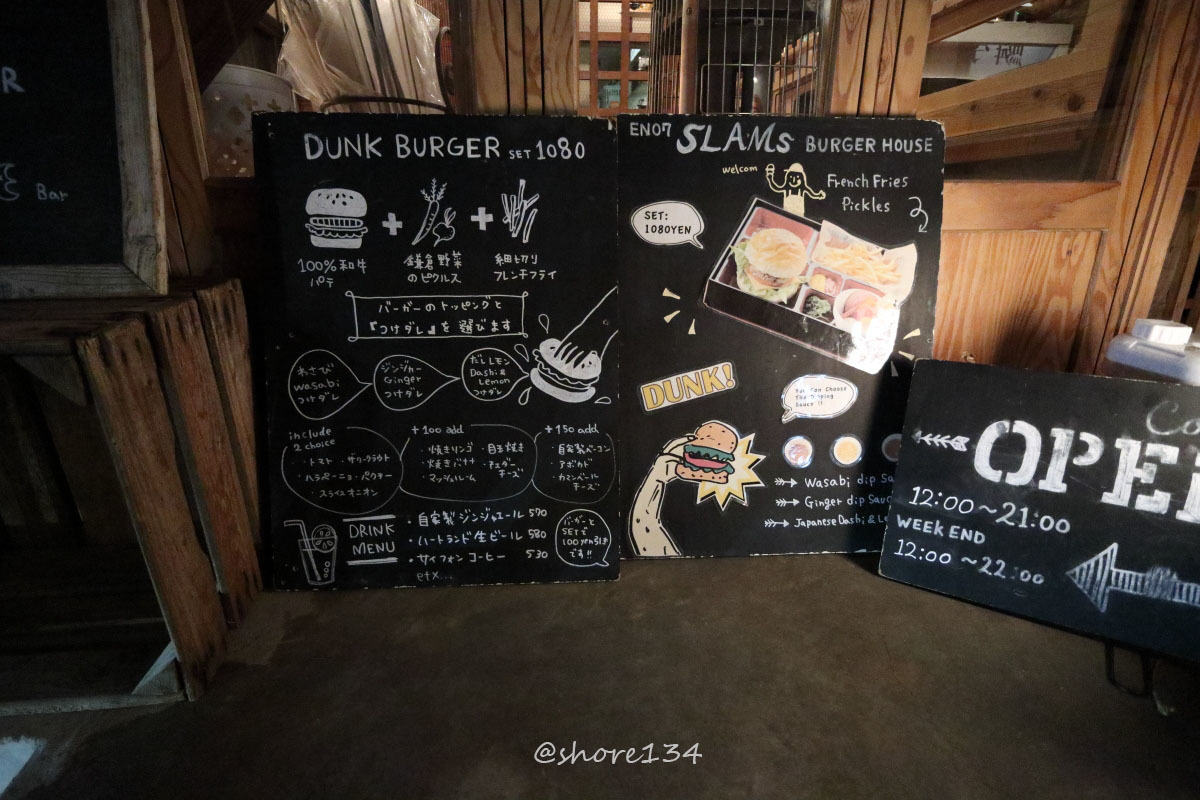 R
Bar
DUNK BURGER SET 1080
100%和牛
パテ
鎌倉野菜
のピクルス
細切り
フレンチフライ
バーガーのトッピングと
『つけダレ』を選びます
わさび
wasabi
つけダレ
ジンジャー
Ginger
つけダレ
だしレモン
Dashi &
Lemon
つけダレ
include
2 choice
・トマト ・ザワークラウト
・ハラペーニョ ・パクチー
・スライスオニオン
+100 add
・焼きリンゴ ・目玉焼き
・焼きバナナ ・チェダー
チーズ
・マッシュルーム
+150 add
・自家製ベーコン
・アボカド
・カマンベール
チーズ
DRINK
MENU
・自家製ジンジャエール 590
・ハートランド生ビール 580
・サイフォンコーヒー 530
etx...
バーガーと
SETで
100yen引き
です!!
EN07 SLAMS BURGER HOUSE
welcom
French Fries
Pickles
SET:
1080YEN
DUNK!
You Can Choose
The Dipping
Sauce !!
Wasabi dip Sa
Ginger dip Sauc
Japanese Dashi & Le
OPE
12:00~21:00
WEEK END
12:00~22:00
@shore134